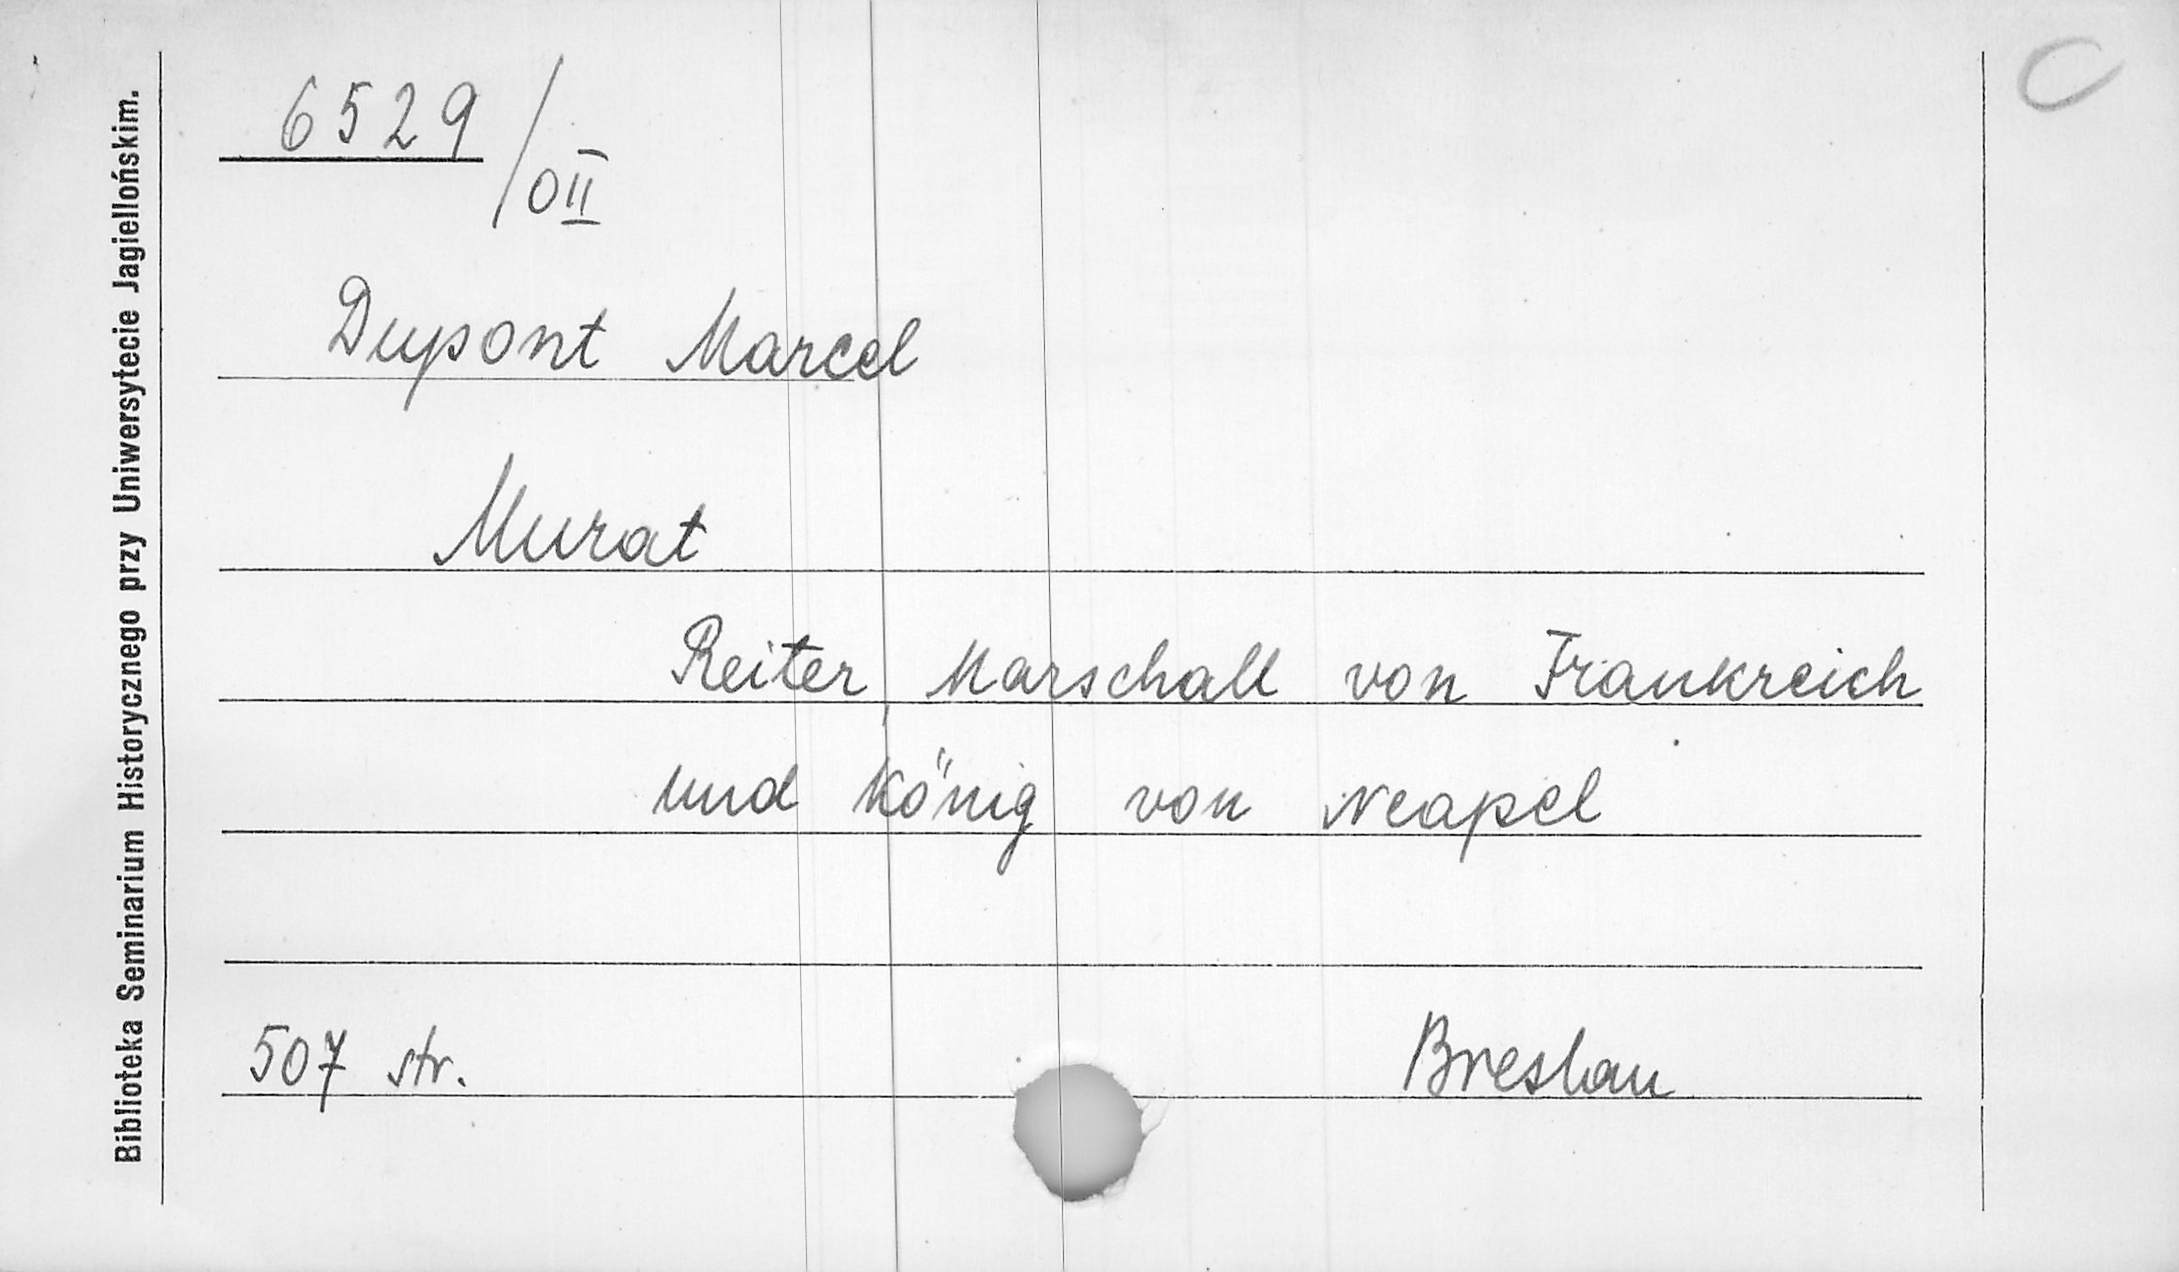 C
6529/OII
Dupont Marcel
Murat
Reiter Marschall von Frankreich
und König von Neapel
507 str.
Breslau
Biblioteka Seminarium Historycznego przy Uniwersytecie Jagiellońskim.